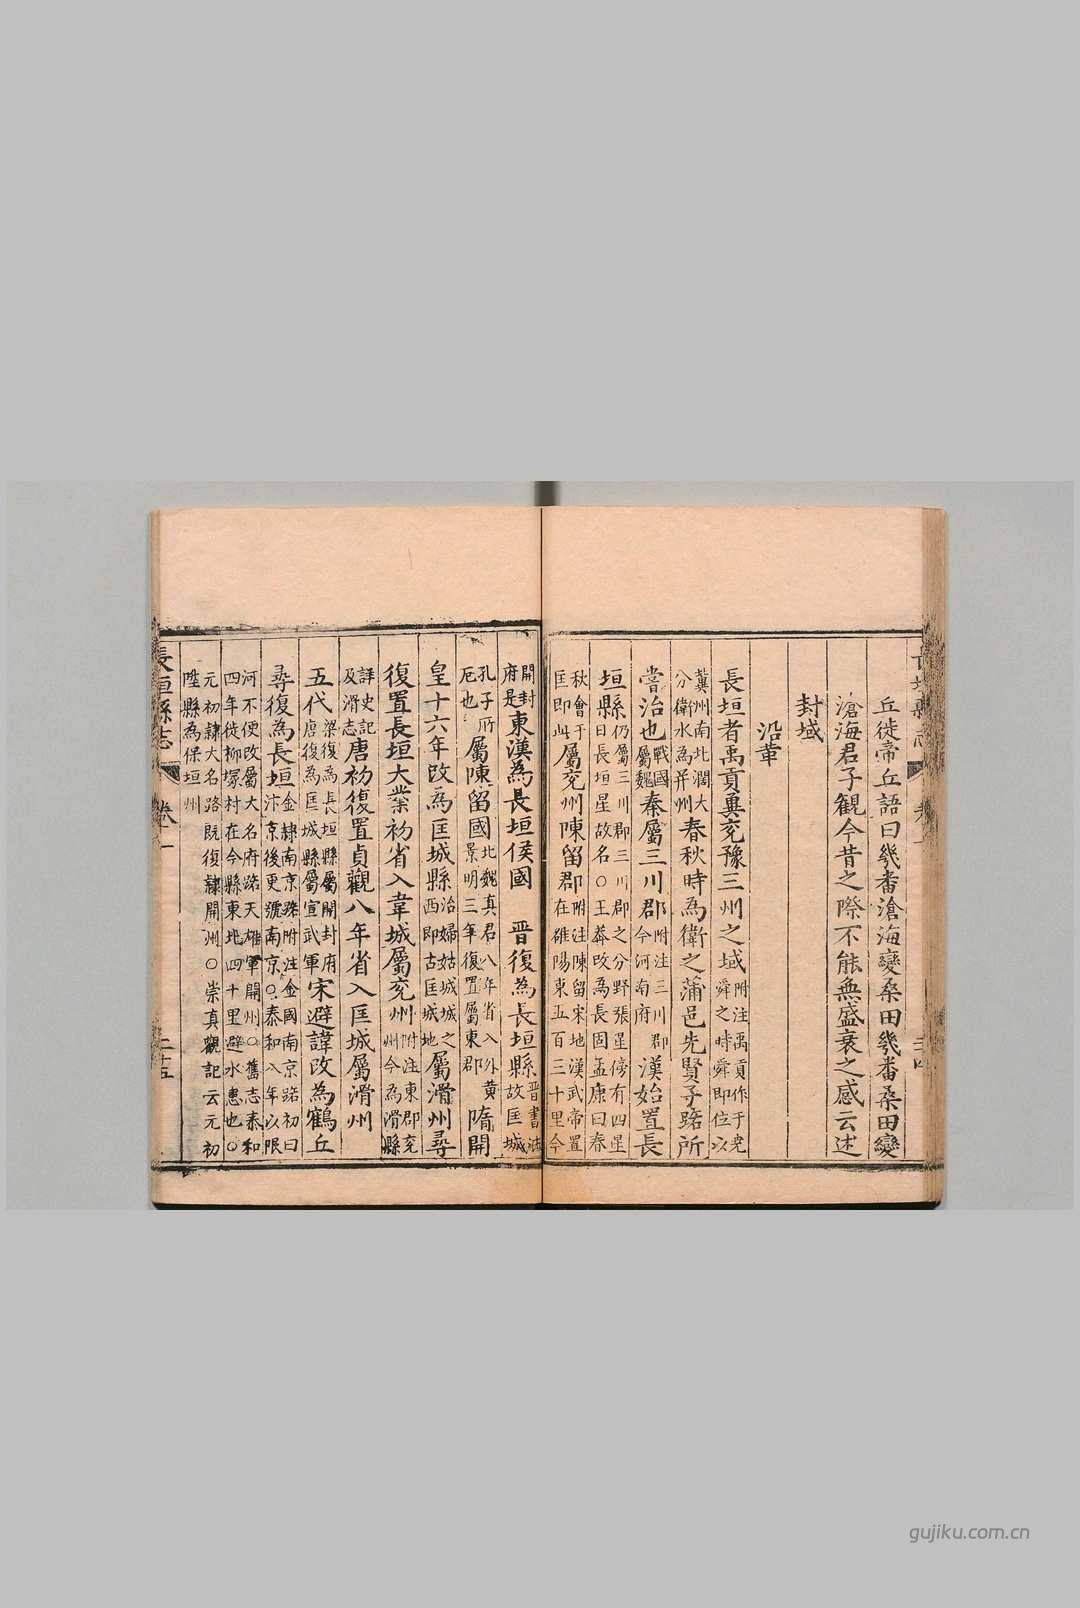 丘徙帝丘語曰幾番滄海變桑田幾番桑田變
滄海君子觀今昔之際不能無盛衰之感云述
封域
沿革
長垣者禹貢冀兗豫三州之域附注禹貢作于堯
舜之時舜即位以
冀州南北濶大
分衛水為并州春秋時為衛之蒲邑先賢子路所
嘗治也戰國
屬魏秦屬三川郡附注三川郡
今河南府漢始置長
垣縣仍屬三川郡三川郡之分野張星傍有四星
曰長垣星故名○王莽改為長固孟康曰春
秋會于
匡即此屬兗州陳留郡附注陳留宋地漢武帝置
在雎陽東五百三十里今
開封
府是東漢為長垣侯國 晋復為長垣縣晋書註
故匡城
孔子所
厄也屬陳留國北魏真君八年省入外黄
景明三年復置屬東郡隋開
皇十六年改為匡城縣治婦姑城城之
西即古匡城地屬滑州尋
復置長垣大業初省入韋城屬兗州附注東郡兗
州今為滑縣
詳史記
及滑志唐初復置貞觀八年省入匡城屬滑州
五代梁復為長垣縣屬開封府
唐復為匡城縣屬宣武軍宋避諱改為鶴丘
尋復為長垣金隸南京路附注金國南京路初曰
汴京後更號南京○泰和八年以限
河不便改屬大名府路天雄軍開州○舊志泰和
四年徙柳塚村在今縣東北四十里避水患也○
元初隸大名路既復隸開州○崇真觀記云元初
陞縣為保垣州
長垣縣志
卷一
二十五
gujiku.com.cn